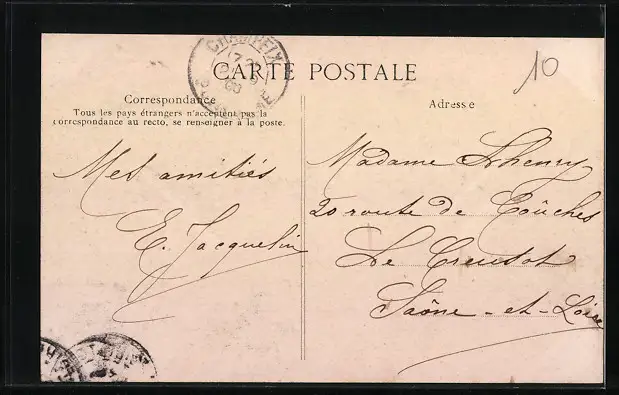 CHAMPEIX
CARTE POSTALE
10
Correspondance
Tous les pays étrangers n'acceptent pas la
correspondance au recto, se renseigner à la poste.
Mes amitiés
E. Jacquelin
Adresse
Madame Lhenry
20 route de Coûches
Le Creusot
Saône-et-Loire